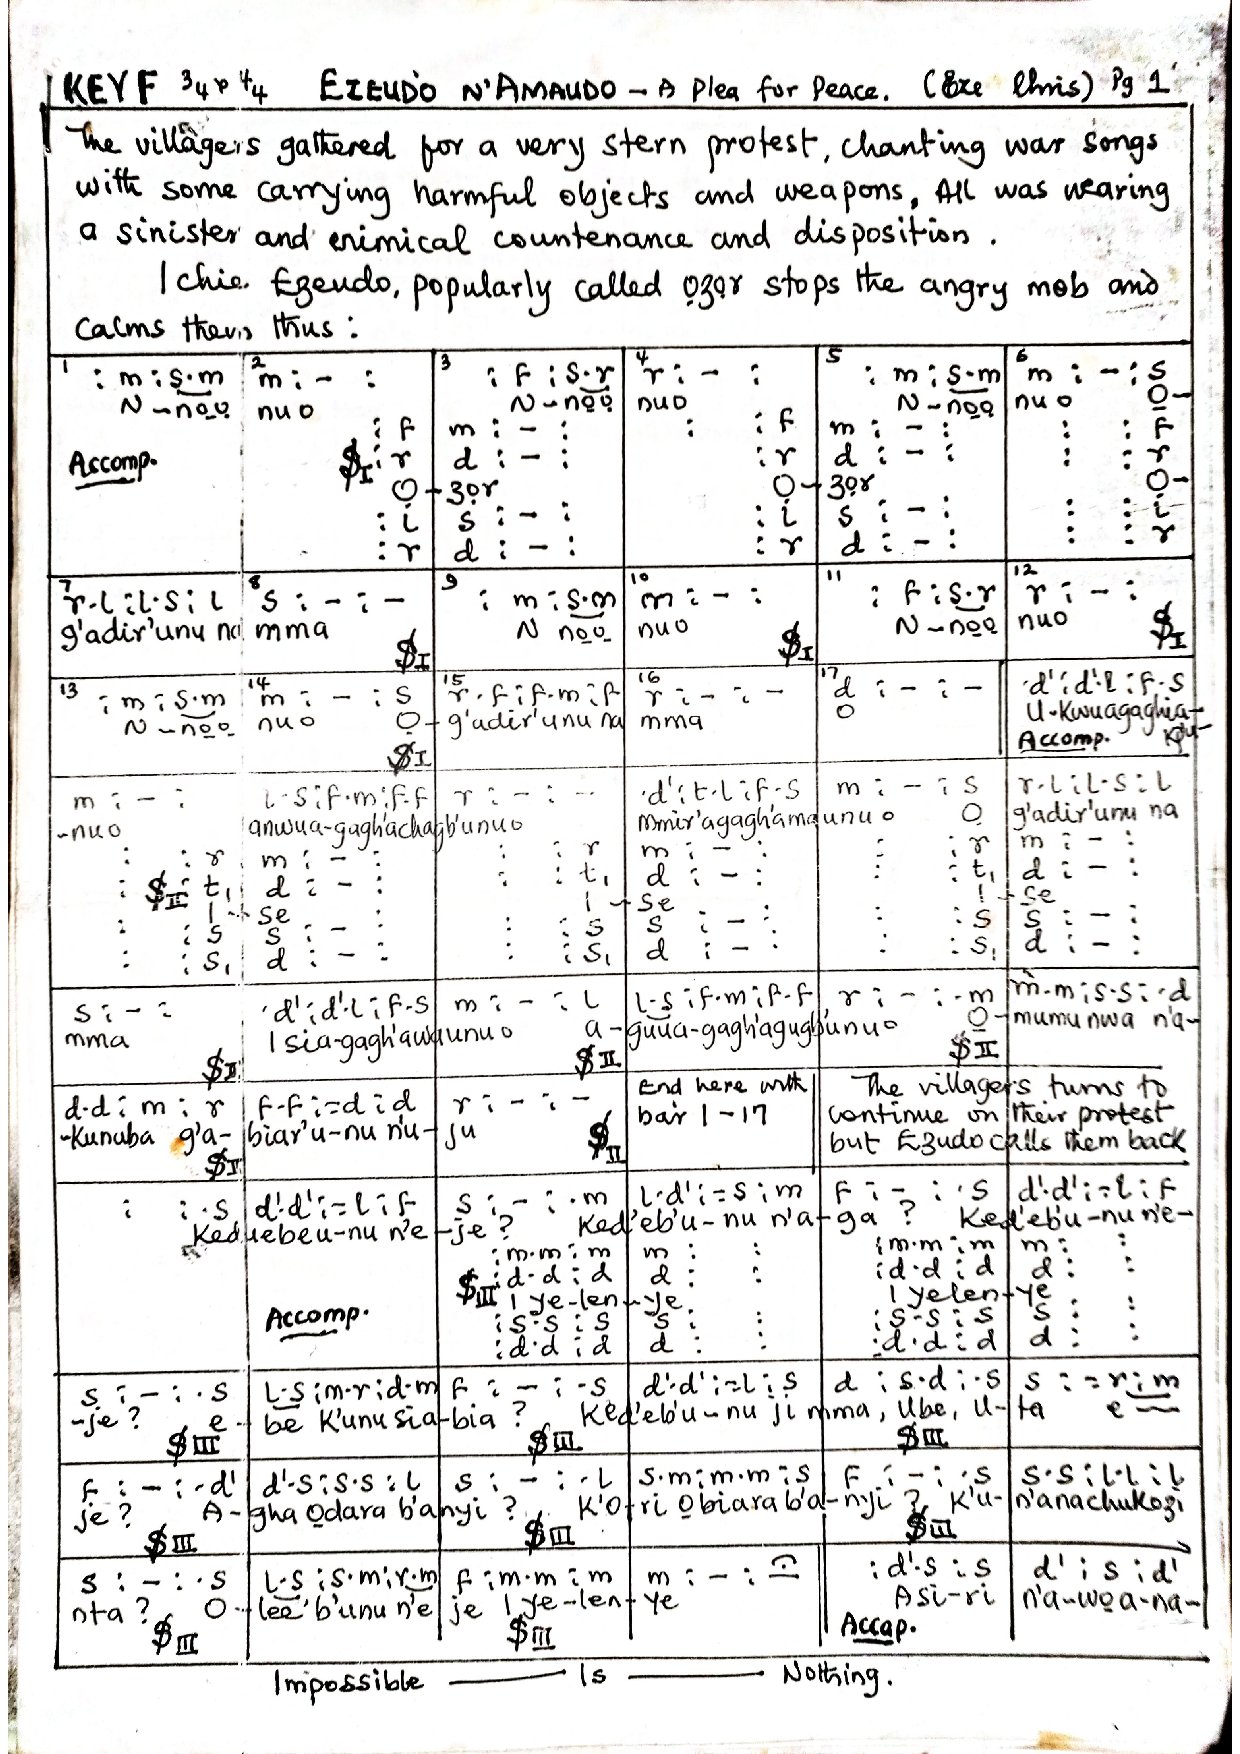 KEY F 3/4 & 4/4 EZEUDO N'AMAUDO – A Plea for Peace. (Eze Chris) Pg 1
The villagers gathered for a very stern protest, chanting war songs
with some carrying harmful objects and weapons, All was wearing
a sinister and enimical countenance and disposition.
Ichie Ezeudo, popularly called Ọzọr stops the angry mob and
calms them thus:
1 2 3 4 5 6
: m : s.m m : - : : f : s.r r : - : : m : s.m m : - : s
N - nọọ nuo N - nọọ nuo N - nọọ nuo Ọ-
: f m : - : : : f m : - : : : f
Accomp. $I : r d : - : : r d : - : : : r
Ọ - zọr Ọ - zọr Ọ-
: l s : - : : l s : - : : : l
: r d : - : : r d : - : : : r
7 8 9 10 11 12
r.l : l.s : l s : - : - : m : s.m m : - : : f : s.r r : - :
g'adir'unu na mma N nọọ nuo N - nọọ nuo
$I $I $I
13 14 15 16 17
: m : s.m m : - : s r.f : f.m : f r : - : - d : - : - .d' : d'.l : f.s
N - nọọ nuo Ọ- g'adir'unu na mma O U-Kwuagaghia-
$I Accomp. kpu-
m : - : l.s : f.m : f.f r : - : - .d' : t.l : f.s m : - : s r.l : l.s : l
-nuo anwua-gagh'achagb'unuo mmir'agagh'amaunuo O g'adir'unu na
: : r m : - : : : r m : - : : : r m : - :
: $II : t₁ d : - : : : t₁ d : - : : : t₁ d : - :
I - se I - se I - se
: : s s : - : : : s s : - : : : s s : - :
: : s₁ d : - : : : s₁ d : - : : : s₁ d : - :
s : - : .d' : d'.l : f.s m : - : l l.s : f.m : f.f r : - : .m m.m : s.s : .d
mma Isia-gagh'awaunuo a-guua-gagh'agugbunuo O-mumunwa n'a-
$II $II $II
d.d : m : r f.f : = d : d r : - : - End here with The villagers turns to
-Kunuba g'a- biar'u-nu n'u-ju bar 1-17 continue on their protest
$II $II but Ezudo calls them back
: : .s d'.d' : = l : f s : - : .m l.d' : = s : m f : - : .s d'.d' : = l : f
Keduebeu-nu n'e-je? Ked'eb'u-nu n'a-ga? Ked'eb'u-nu n'e-
: m.m : m m : : : m.m : m m : :
$III : d.d : d d : : : d.d : d d : :
I ye-len-ye I yelen-ye
Accomp. : s.s : s s : : : s.s : s s : :
: d.d : d d : : : d.d : d d : :
s : - : .s l.s : m.r : d.m f : - : .s d'.d' : = l : s d : s.d : .s s : = r : m
-je? e-be K'unu sia-bia? Ked'eb'u-nu ji mma, Ube, U-ta e
$III $III $III
f : - : .d' d'.s : s.s : l s : - : .l s.m : m.m : s f : - : .s s.s : l.l : l
je? A-gha Ọdara b'anyi? K'O-ri Obiara b'a-nyi? K'u-n'anachukọzi
$III $III $III
s : - : .s l.s : s.m : r.m f : m.m : m m : - : : d'.s : s d' : s : d'
nta? O-lee'b'unu n'e je I ye-len-ye Asi-ri n'a-wọa-na-
$III $III Accap.
Impossible — Is — Nothing.